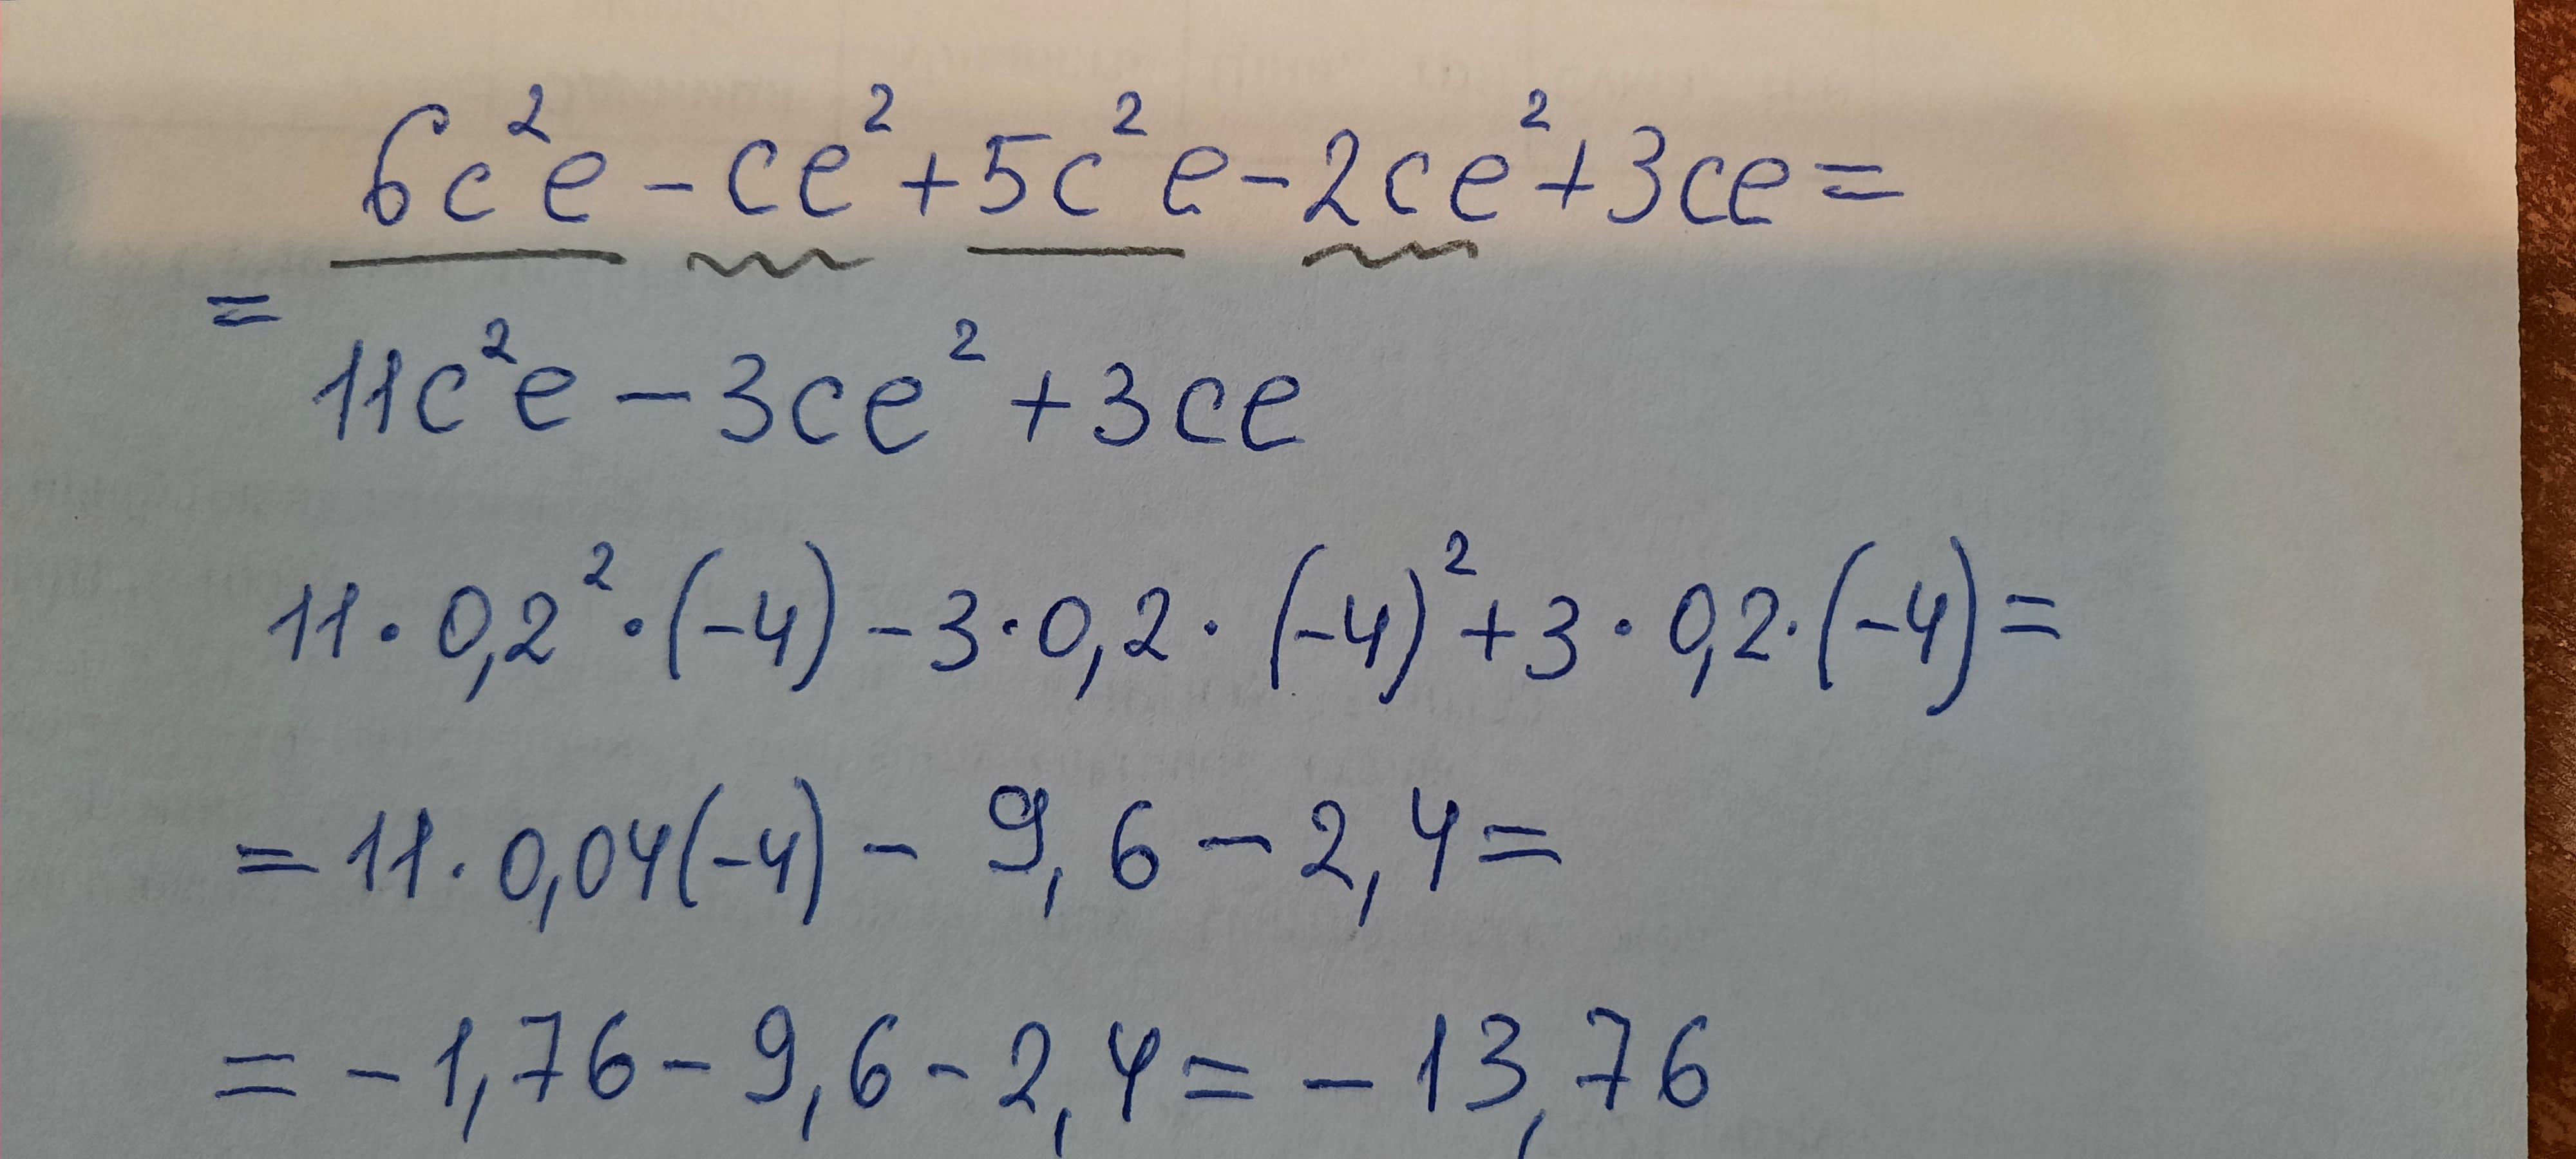 6c²e - ce² + 5c²e - 2ce² + 3ce =
=
11c²e - 3ce² + 3ce
11 · 0,2² · (-4) - 3 · 0,2 · (-4)² + 3 · 0,2 · (-4) =
= 11 · 0,04(-4) - 9,6 - 2,4 =
= -1,76 - 9,6 - 2,4 = -13,76